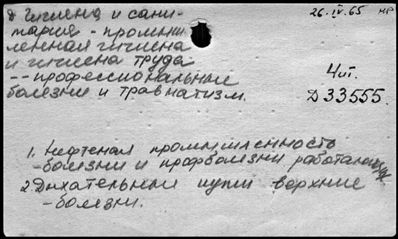 Гигиена и сани-
26.IV.65 НР
тария - промыш
ленная гигиена
и гигиена труда
-- профессиональные
4ит.
болезни и травматизм.
Д33555.
1. Нефтеная промышленность
-болезни и профболезни работающих
2. Дыхательные пути верхние
-болезни.